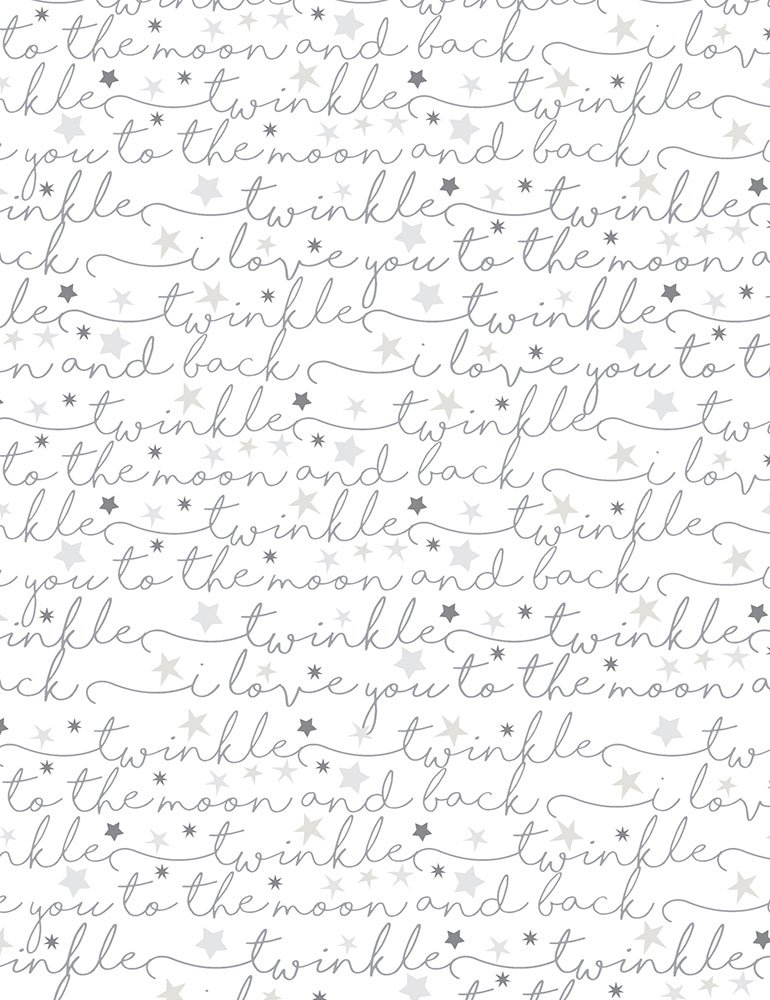 to the moon and back i lov
nkle twinkle twinkle
you to the moon and back i
inkle twinkle twinkle
ck i love you to the moon a
le twinkle twinkle
n and back i love you to t
twinkle twinkle tw
to the moon and back i lov
nkle twinkle twinkle
you to the moon and back i
inkle twinkle twinkle
ck i love you to the moon a
twinkle twinkle tw
to the moon and back i lov
nkle twinkle twinkle
you to the moon and back i
inkle twinkle twinkle